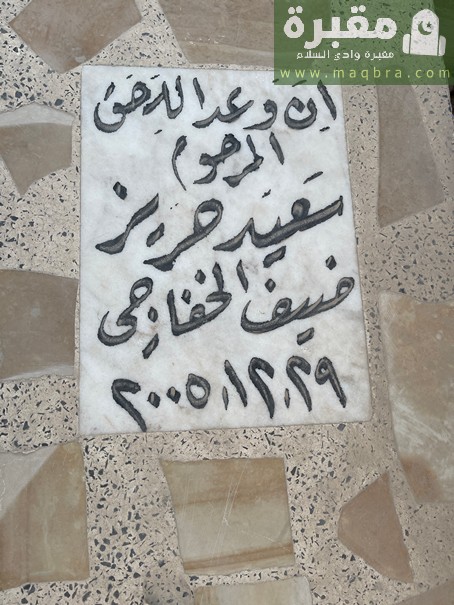 مقبرة
مقبرة وادي السلام
www.maqbra.com
إن وعد الله حق
المرحوم
سعيد هريز
ضيف الخفاجي
٢٠٠٥.١٢.٢٩